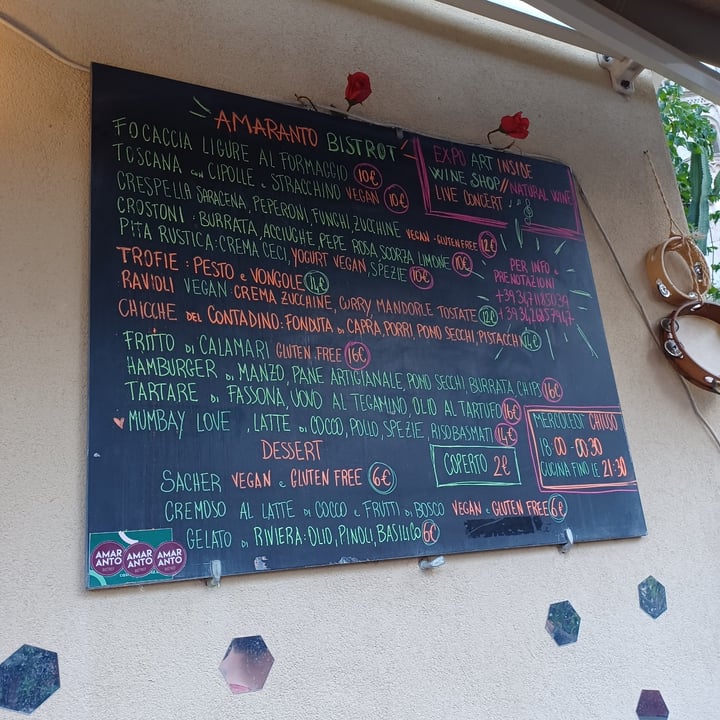 AMARANTO BISTROT
FOCACCIA LIGURE AL FORMAGGIO 10€
TOSCANA CON CIPOLLE E STRACCHINO VEGAN 10€
CRESPELLA SARACENA, PEPERONI, FUNGHI, ZUCCHINE VEGAN-GLUTENFREE 12€
CROSTONI: BURRATA, ACCIUGHE, PEPE ROSA, SCORZA LIMONE 10€
PITA RUSTICA: CREMA CECI, YOGURT VEGAN, SPEZIE 10€
TROFIE: PESTO E VONGOLE 14€
RAVIOLI VEGAN: CREMA ZUCCHINE, CURRY, MANDORLE TOSTATE 12€
CHICCHE DEL CONTADINO: FONDUTA DI CAPRA, PORRI, POMO SECCHI, PISTACCHI 14€
FRITTO DI CALAMARI GLUTEN FREE 16€
HAMBURGER DI MANZO, PANE ARTIGIANALE, POMO SECCHI, BURRATA, CHIPS 16€
TARTARE DI FASSONA, UOVO AL TEGAMINO, OLIO AL TARTUFO 16€
MUMBAY LOVE, LATTE DI COCCO, POLLO, SPEZIE, RISO BASMATI 14€
DESSERT
SACHER VEGAN E GLUTEN FREE 6€
CREMOSO AL LATTE DI COCCO E FRUTTI DI BOSCO VEGAN E GLUTEN FREE 6€
GELATO DI RIVIERA: OLIO, PINOLI, BASILICO 6€
EXPO ART INSIDE
WINE SHOP // NATURAL WINE
LIVE CONCERT
PER INFO E
PRENOTAZIONI
COPERTO 2€
MERCOLEDI' CHIUSO
18:00-00:30
CUCINA FINO LE 21:30
AMAR AMAR AMAR
ANTO ANTO ANTO